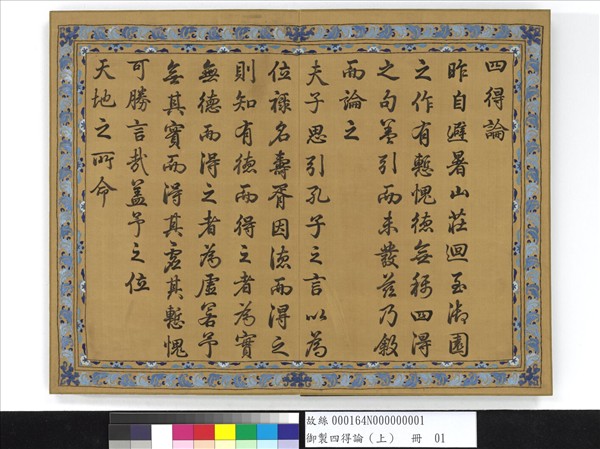 四得論
昨自避暑山莊迴至湖園
之作有慙愧德無稱四得
之句蓋引而未發茲乃敘
而論之
夫子思引孔子之言以為
位祿名壽胥因德而得之
則知有德而得之者為實
無德而得之者為虛若予
無其實而得其虛其慙愧
可勝言哉蓋予之位
天地之所命
故絲 000164N000000001
御製四得論(上) 冊 01